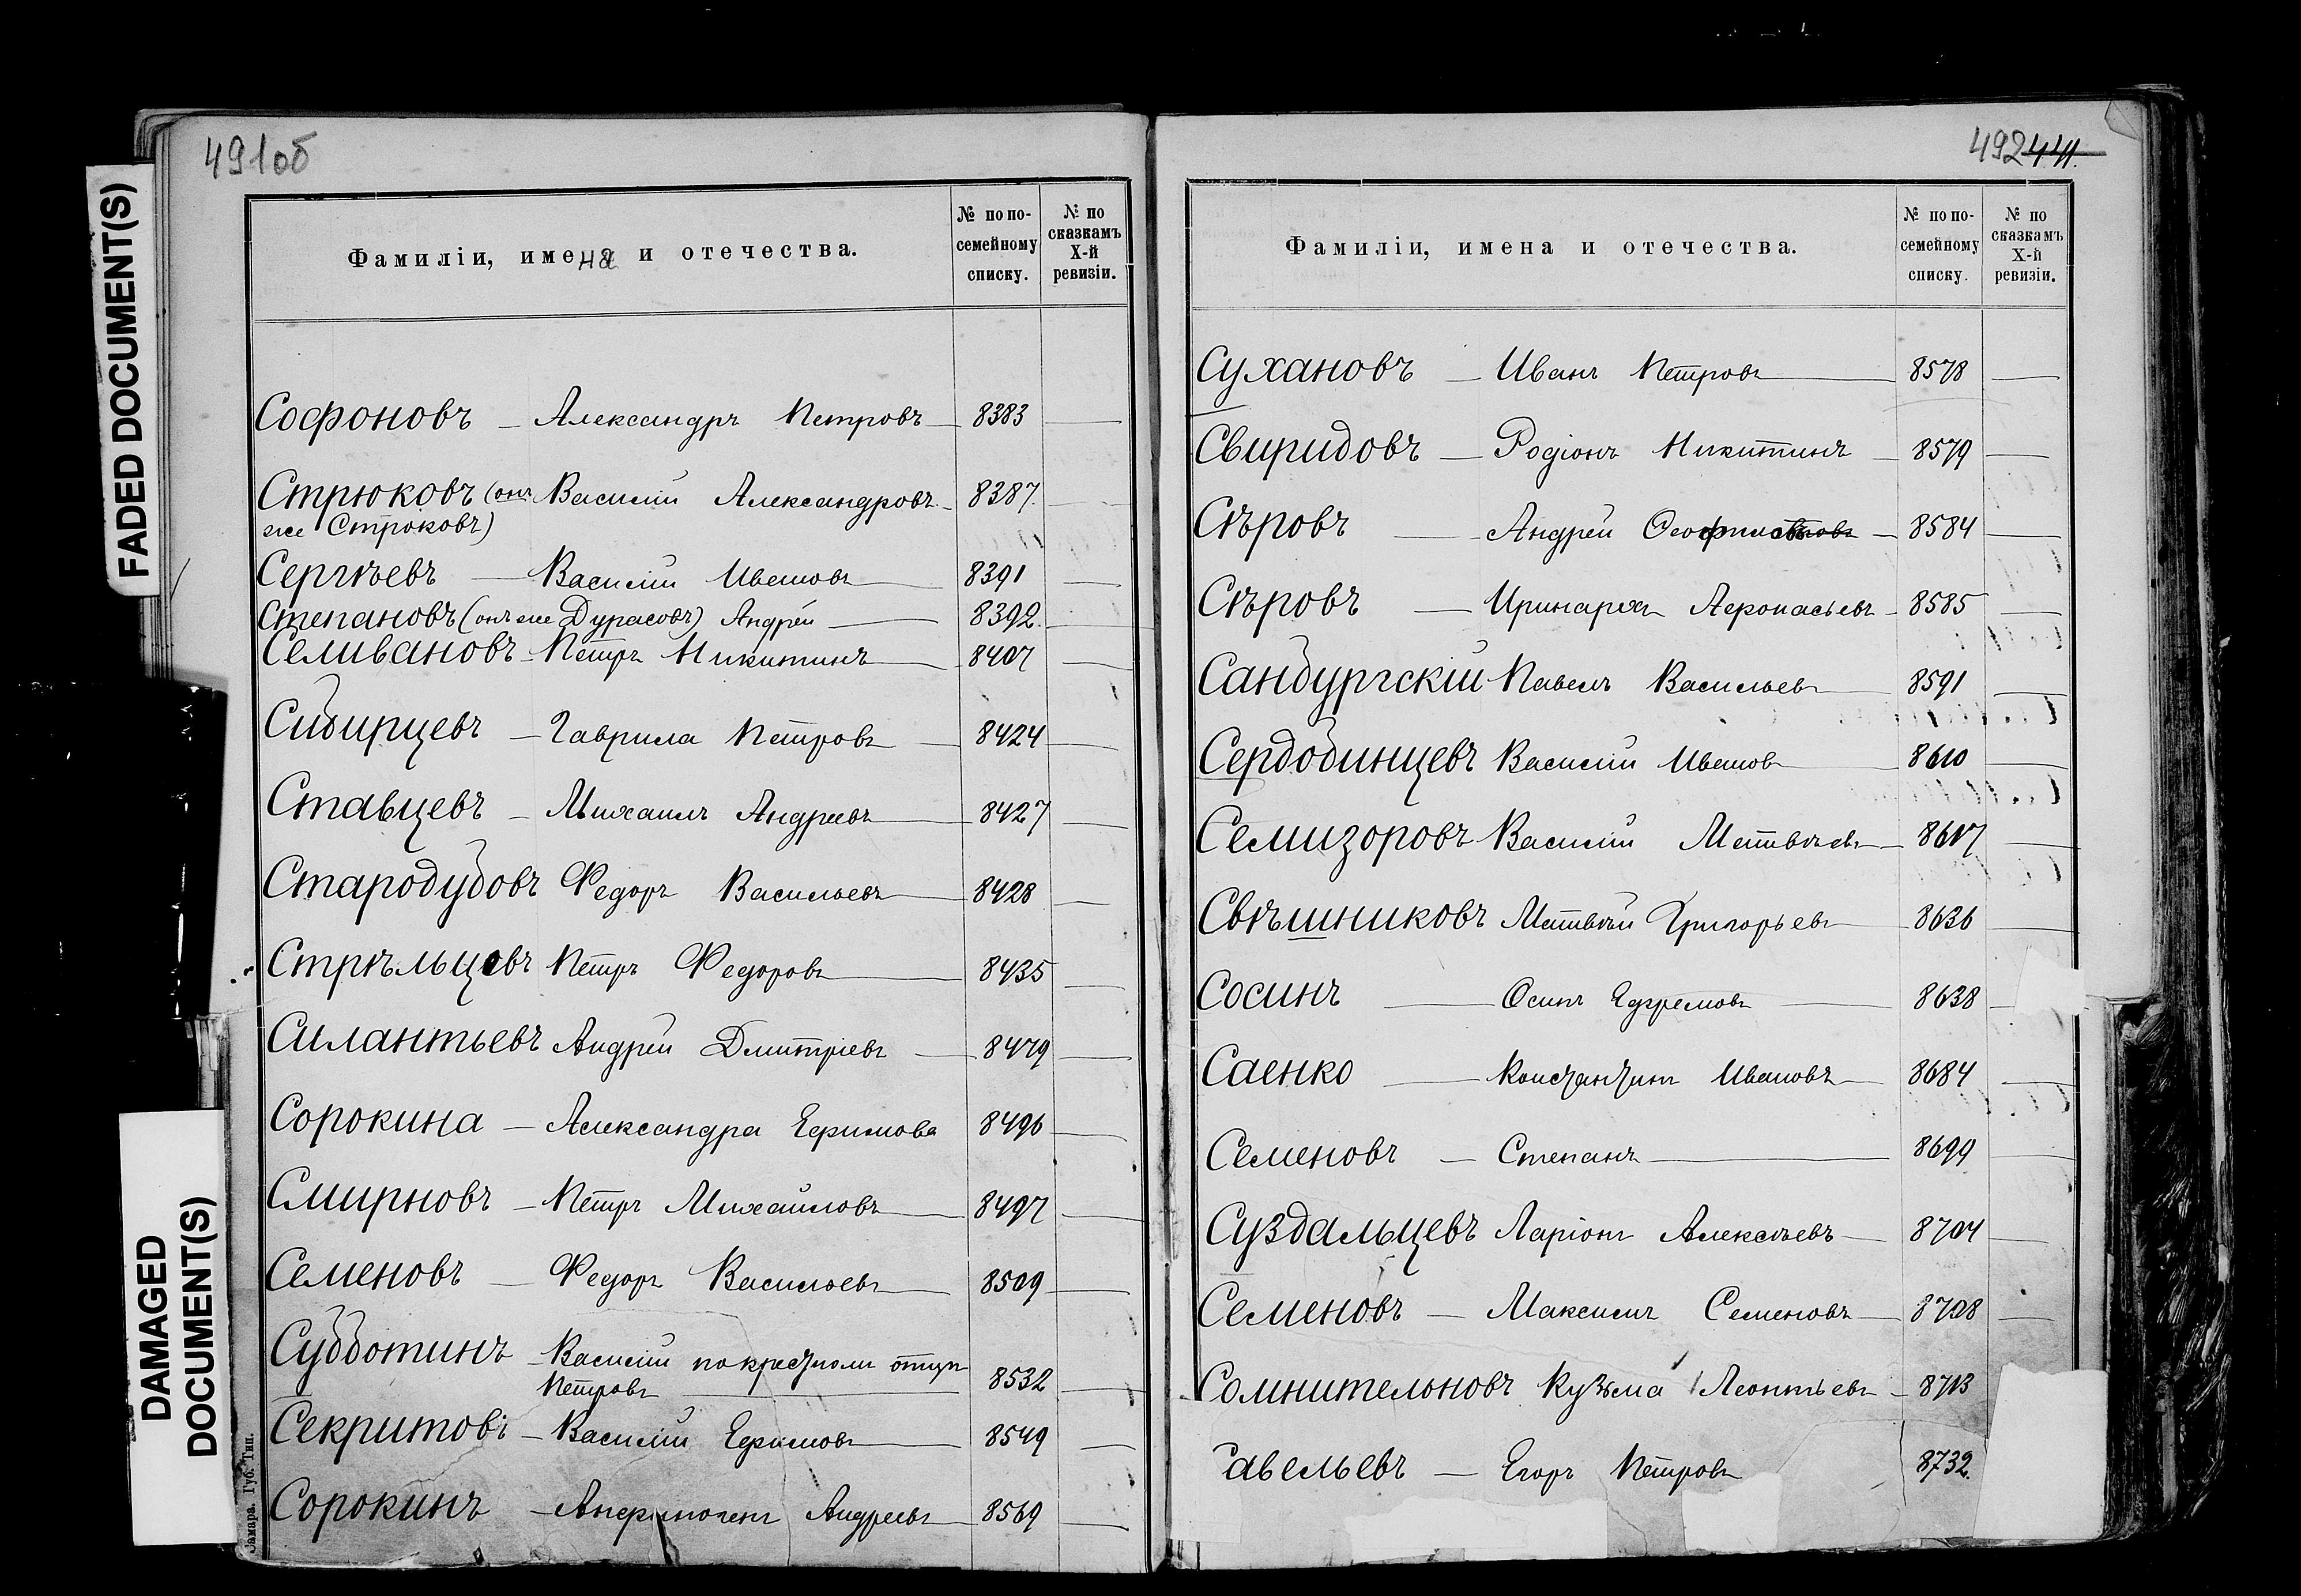 491об
FADED DOCUMENT(S)
DAMAGED DOCUMENT(S)
Фамиліи, имена и отечества. № по посемейному списку. № по сказкамъ X-й ревизіи.
Софоновъ — Александръ Петровъ — 8383 —
Стрюковъ (онъ Василій Александровъ — 8387 —
же Строковъ)
Сергѣевъ — Василій Ивановъ — 8391 —
Степановъ (онъ же Дурасовъ) Андрей — 8392 —
Селивановъ — Петръ Никитинъ — 8407 —
Сибирцевъ — Гаврила Петровъ — 8424 —
Ставцевъ — Михаилъ Андреевъ — 8427 —
Стародубовъ Федоръ Васильевъ — 8428 —
Стрѣльцовъ Петръ Федоровъ — 8435 —
Силантьевъ Андрей Дмитріевъ — 8479 —
Сорокина — Александра Ефимова 8496 —
Смирновъ — Петръ Михайловъ — 8497 —
Семеновъ — Федоръ Васильевъ — 8509 —
Субботинъ — Василій по крестном отцу
Петровъ — 8532 —
Секритовъ — Василій Ефимовъ — 8549 —
Сорокинъ — Анфиногенъ Андреевъ — 8569 —
Самара. Губ. Тип.
492 441.
Фамиліи, имена и отечества. № по посемейному списку. № по сказкамъ X-й ревизіи.
Сухановъ — Иванъ Петровъ — 8578 —
Свиридовъ — Родіонъ Никитинъ — 8579 —
Сѣровъ — Андрей — 8584 —
Сѣровъ — Иринархъ Афонасьевъ — 8585 —
Сандургскій Павелъ Васильевъ — 8591 —
Сердобинцевъ Василій Ивановъ — 8610 —
Семизоровъ Василій Матвѣевъ — 8617 —
Свѣшниковъ Матвѣй Григорьевъ — 8636 —
Сосинъ — Осипъ Ефремовъ — 8638 —
Саенко — Константинъ Ивановъ — 8684 —
Семеновъ — Степанъ — 8699 —
Суздальцевъ Ларіонъ Алексѣевъ — 8704 —
Семеновъ — Максимъ Семеновъ — 8708 —
Сомнительновъ Кузьма Леонтьевъ — 8713
Савельевъ — Егоръ Петровъ 8732.